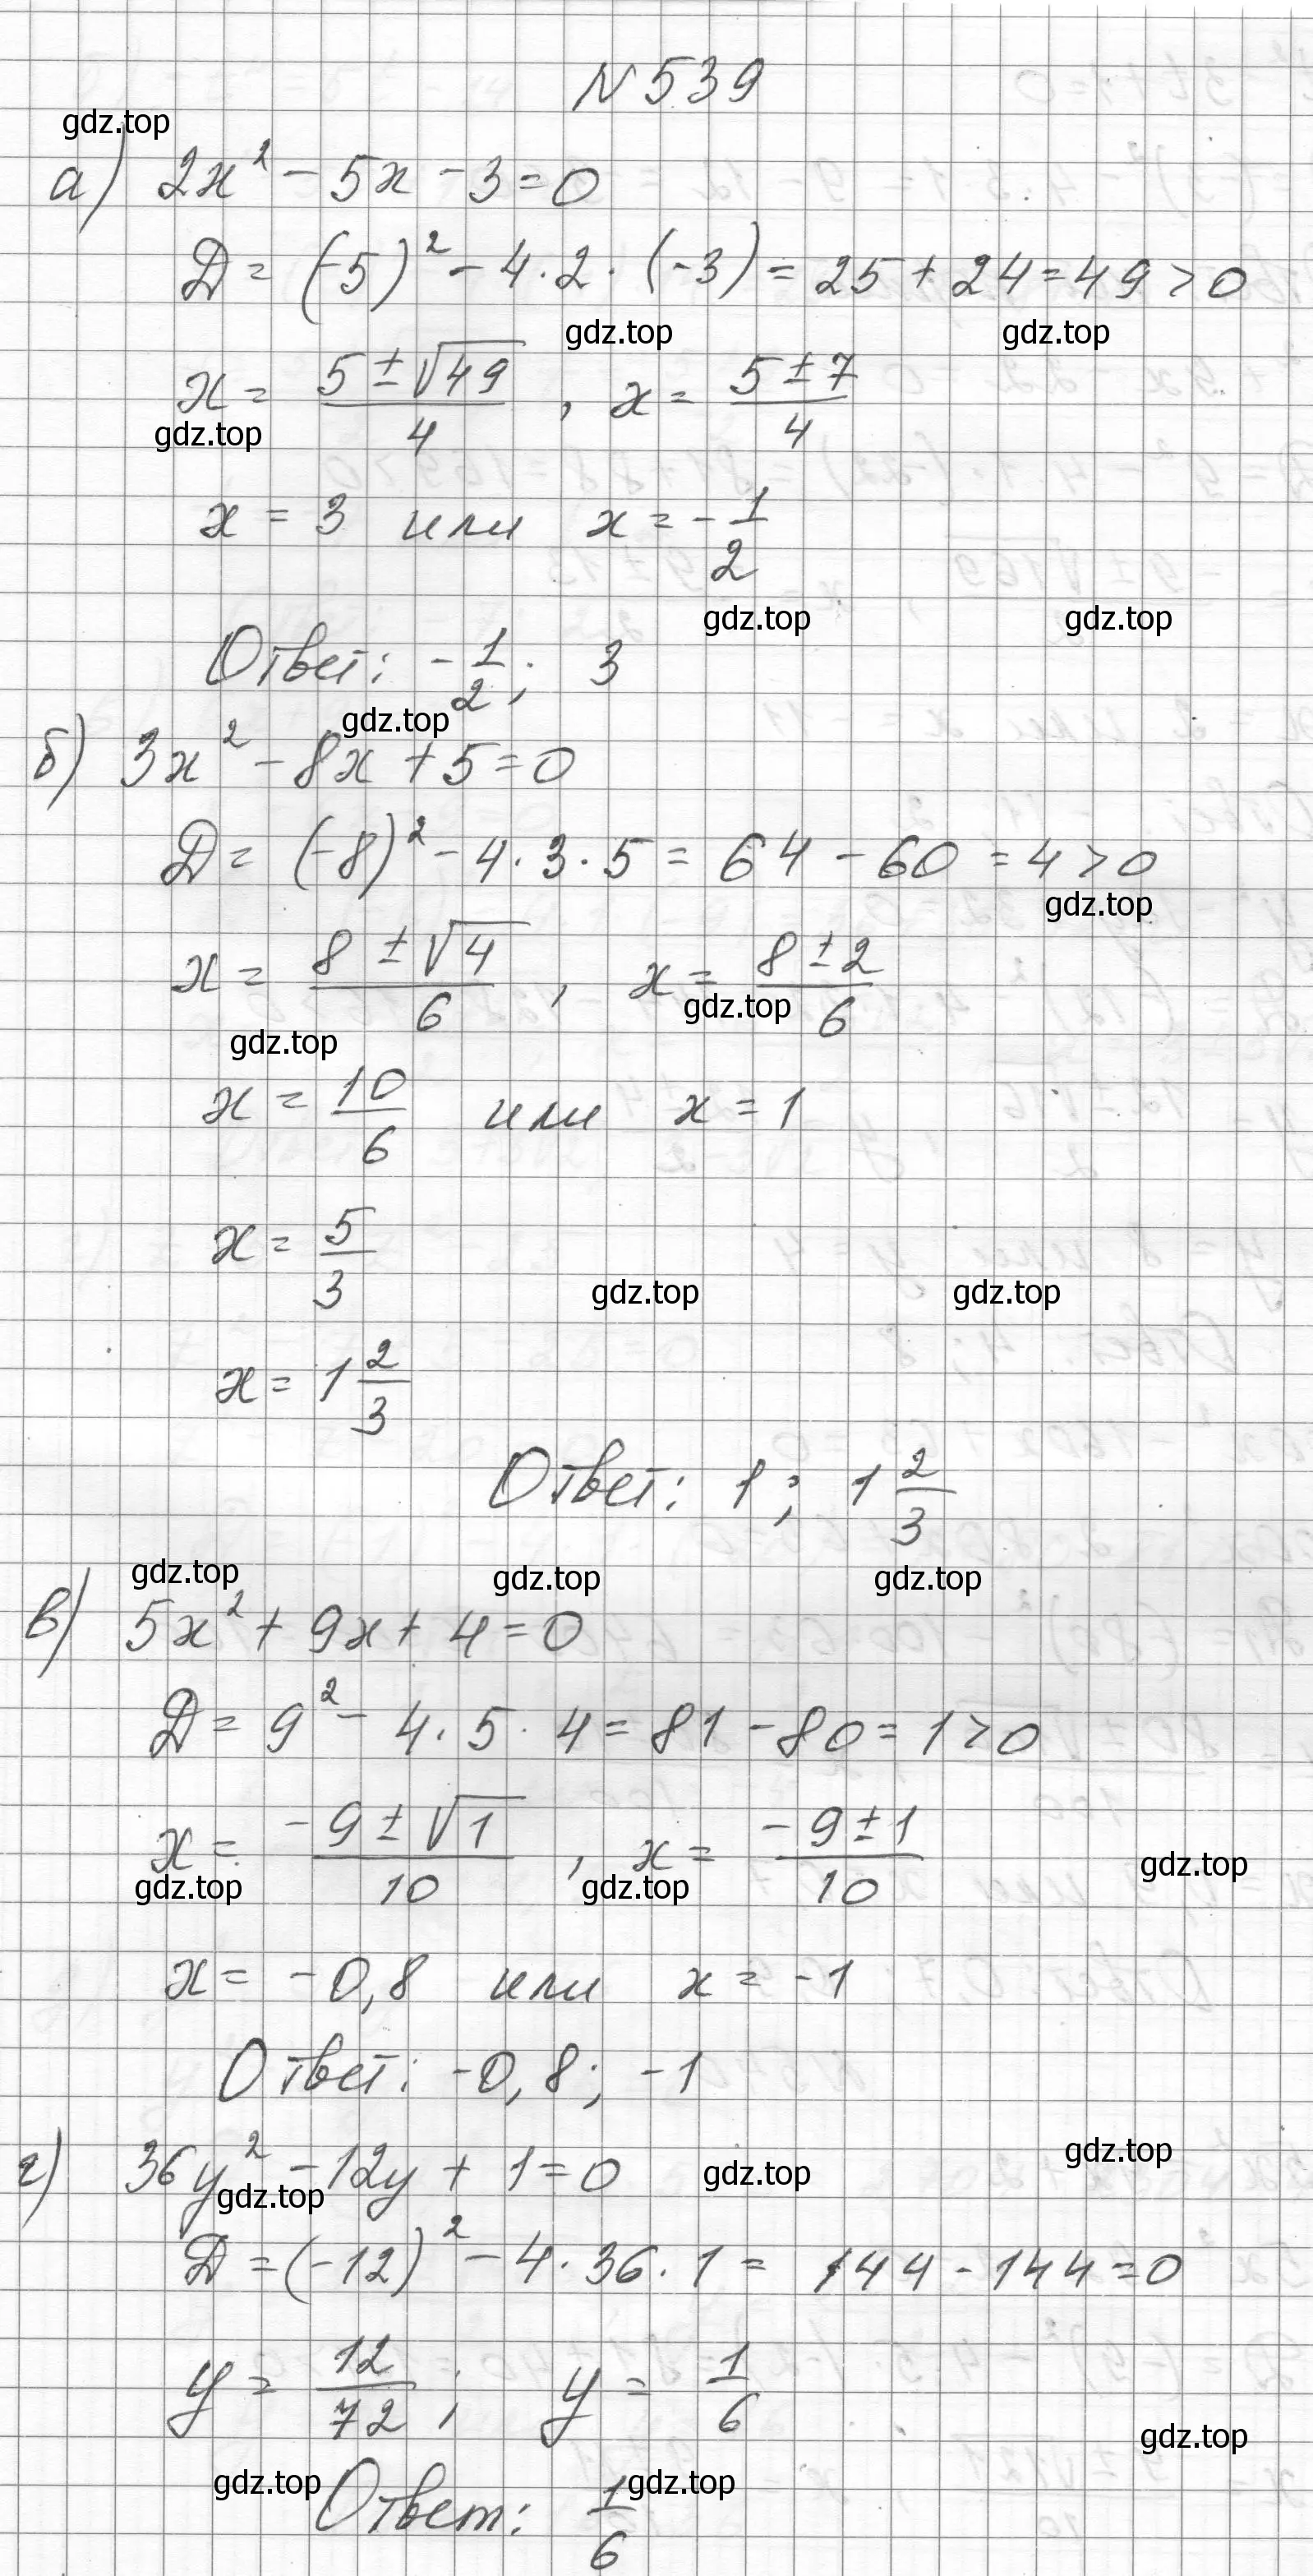 N 539
gdz.top
а) 2x² - 5x - 3 = 0
D = (-5)² - 4 · 2 · (-3) = 25 + 24 = 49 > 0
gdz.top gdz.top
x = (5 ± √49)/4 , x = (5 ± 7)/4
gdz.top
x = 3 или x = - 1/2
gdz.top gdz.top
Ответ: - 1/2 ; 3
gdz.top
б) 3x² - 8x + 5 = 0
D = (-8)² - 4 · 3 · 5 = 64 - 60 = 4 > 0
gdz.top
x = (8 ± √4)/6 , x = (8 ± 2)/6
gdz.top
gdz.top
x = 10/6 или x = 1
x = 5/3
gdz.top gdz.top
x = 1 2/3
Ответ: 1 ; 1 2/3
gdz.top gdz.top gdz.top
в) 5x² + 9x + 4 = 0
D = 9² - 4 · 5 · 4 = 81 - 80 = 1 > 0
x = (-9 ± √1)/10 , x = (-9 ± 1)/10
gdz.top
gdz.top gdz.top
x = -0,8 или x = -1
Ответ: -0,8 ; -1
gdz.top
г) 36y² - 12y + 1 = 0
gdz.top
gdz.top
D = (-12)² - 4 · 36 · 1 = 144 - 144 = 0
y = 12/72 ; y = 1/6
gdz.top
gdz.top gdz.top
Ответ: 1/6